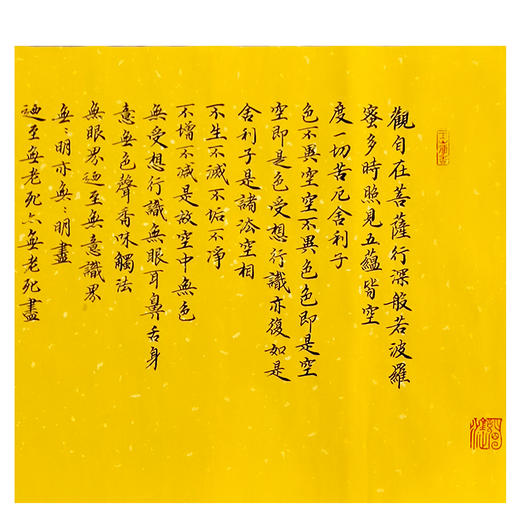 觀自在菩薩行深般若波羅
蜜多時照見五蘊皆空
度一切苦厄舍利子
色不異空空不異色色即是空
空即是色受想行識亦復如是
舍利子是諸法空相
不生不滅不垢不净
不增不减是故空中無色
無受想行識無眼耳鼻舌身
意無色聲香味觸法
無眼界迺至無意識界
無〻明亦無〻明盡
迺至無老死亦無老死盡